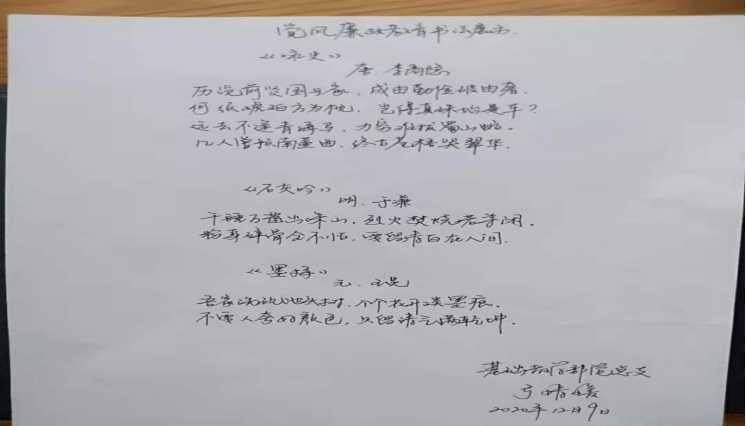 党风廉政教育书法展示
《咏史》
唐 李商隐
历览前贤国与家，成由勤俭破由奢.
何须琥珀方为枕，岂得真珠始是车？
运去不逢青海马，力穷难拔蜀山蛇.
几人曾预南薰曲，终古苍梧哭翠华.
《石灰吟》
明. 于谦
千锤万凿出深山，烈火焚烧若等闲.
粉身碎骨全不怕，要留清白在人间.
《墨梅》
元. 王冕
吾家洗砚池头树，个个花开淡墨痕.
不要人夸好颜色，只留清气满乾坤.
基础教学部党总支
弓晴
2020年12月9日